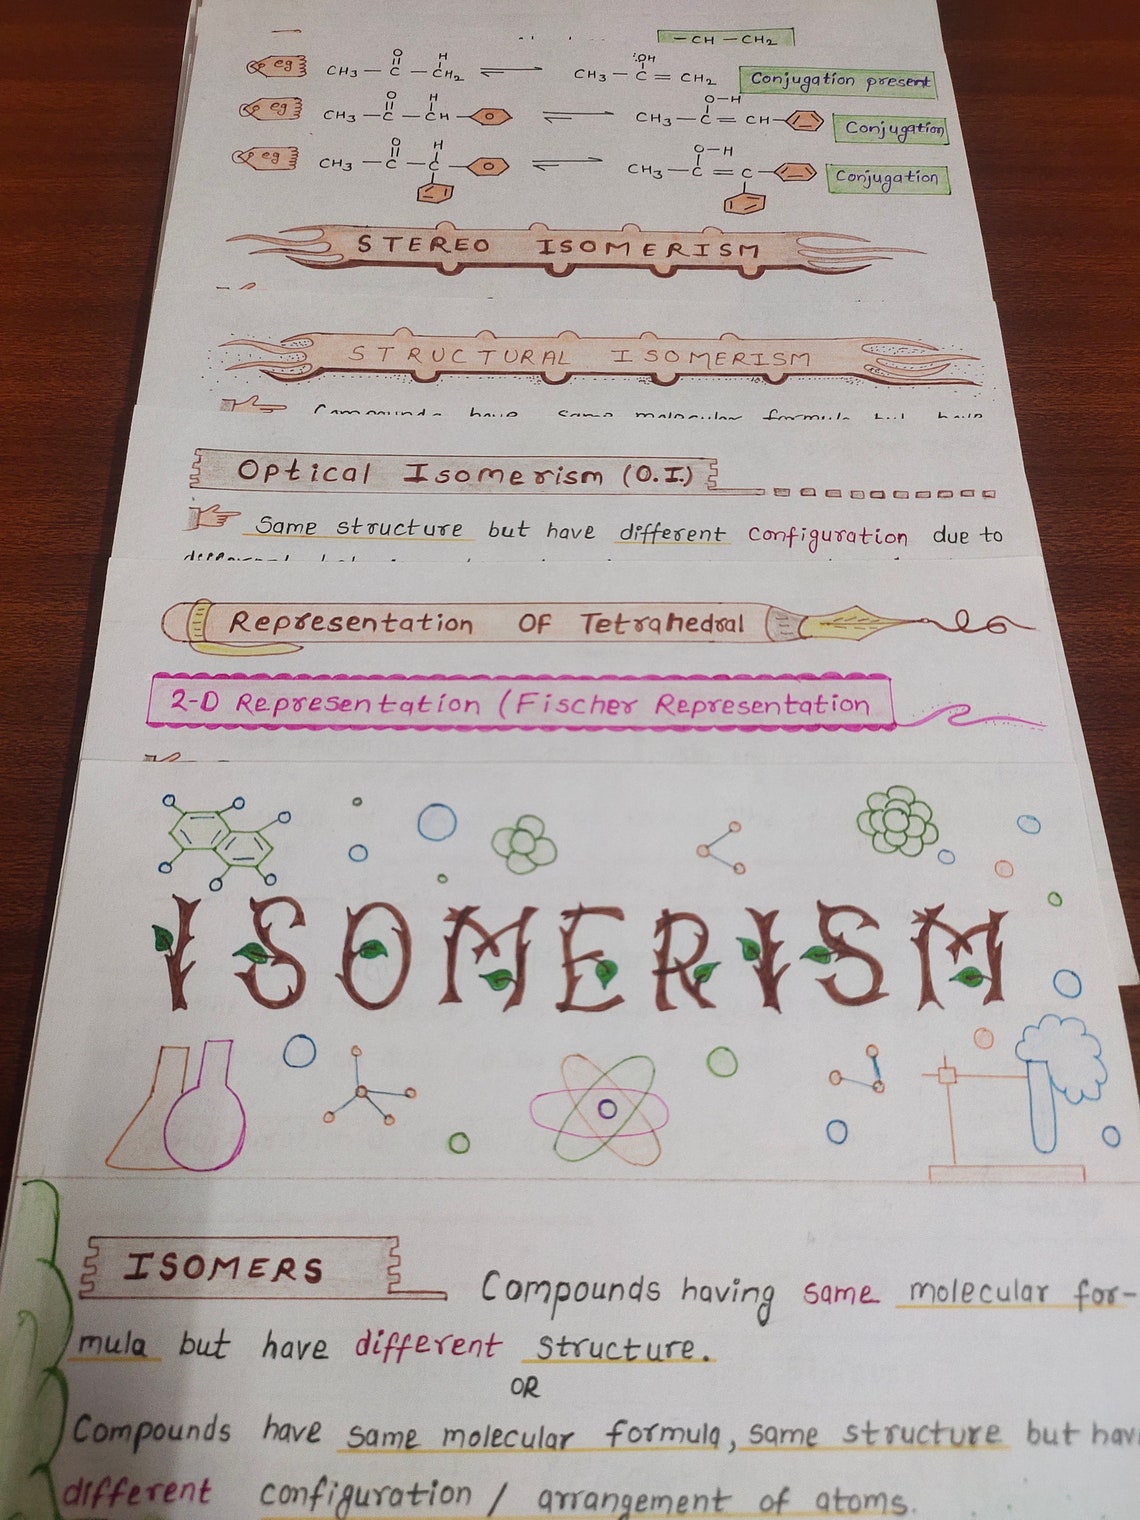 — CH — CH₂
eg CH₃ — C — CH₂ ⇌ CH₃ — C = CH₂ Conjugation present
O H :OH
eg CH₃ — C — CH — ⇌ CH₃ — C = CH — Conjugation
O H O—H
eg CH₃ — C — C — ⇌ CH₃ — C = C — Conjugation
O H O—H
STEREO ISOMERISM
STRUCTURAL ISOMERISM
Compounds have same molecular formula but have
Optical Isomerism (O.I.)
Same structure but have different configuration due to
Representation OF Tetrahedral
2-D Representation (Fischer Representation
ISOMERISM
ISOMERS Compounds having same molecular for-
mula but have different structure.
OR
Compounds have same molecular formula, same structure but hav
different configuration / arrangement of atoms.